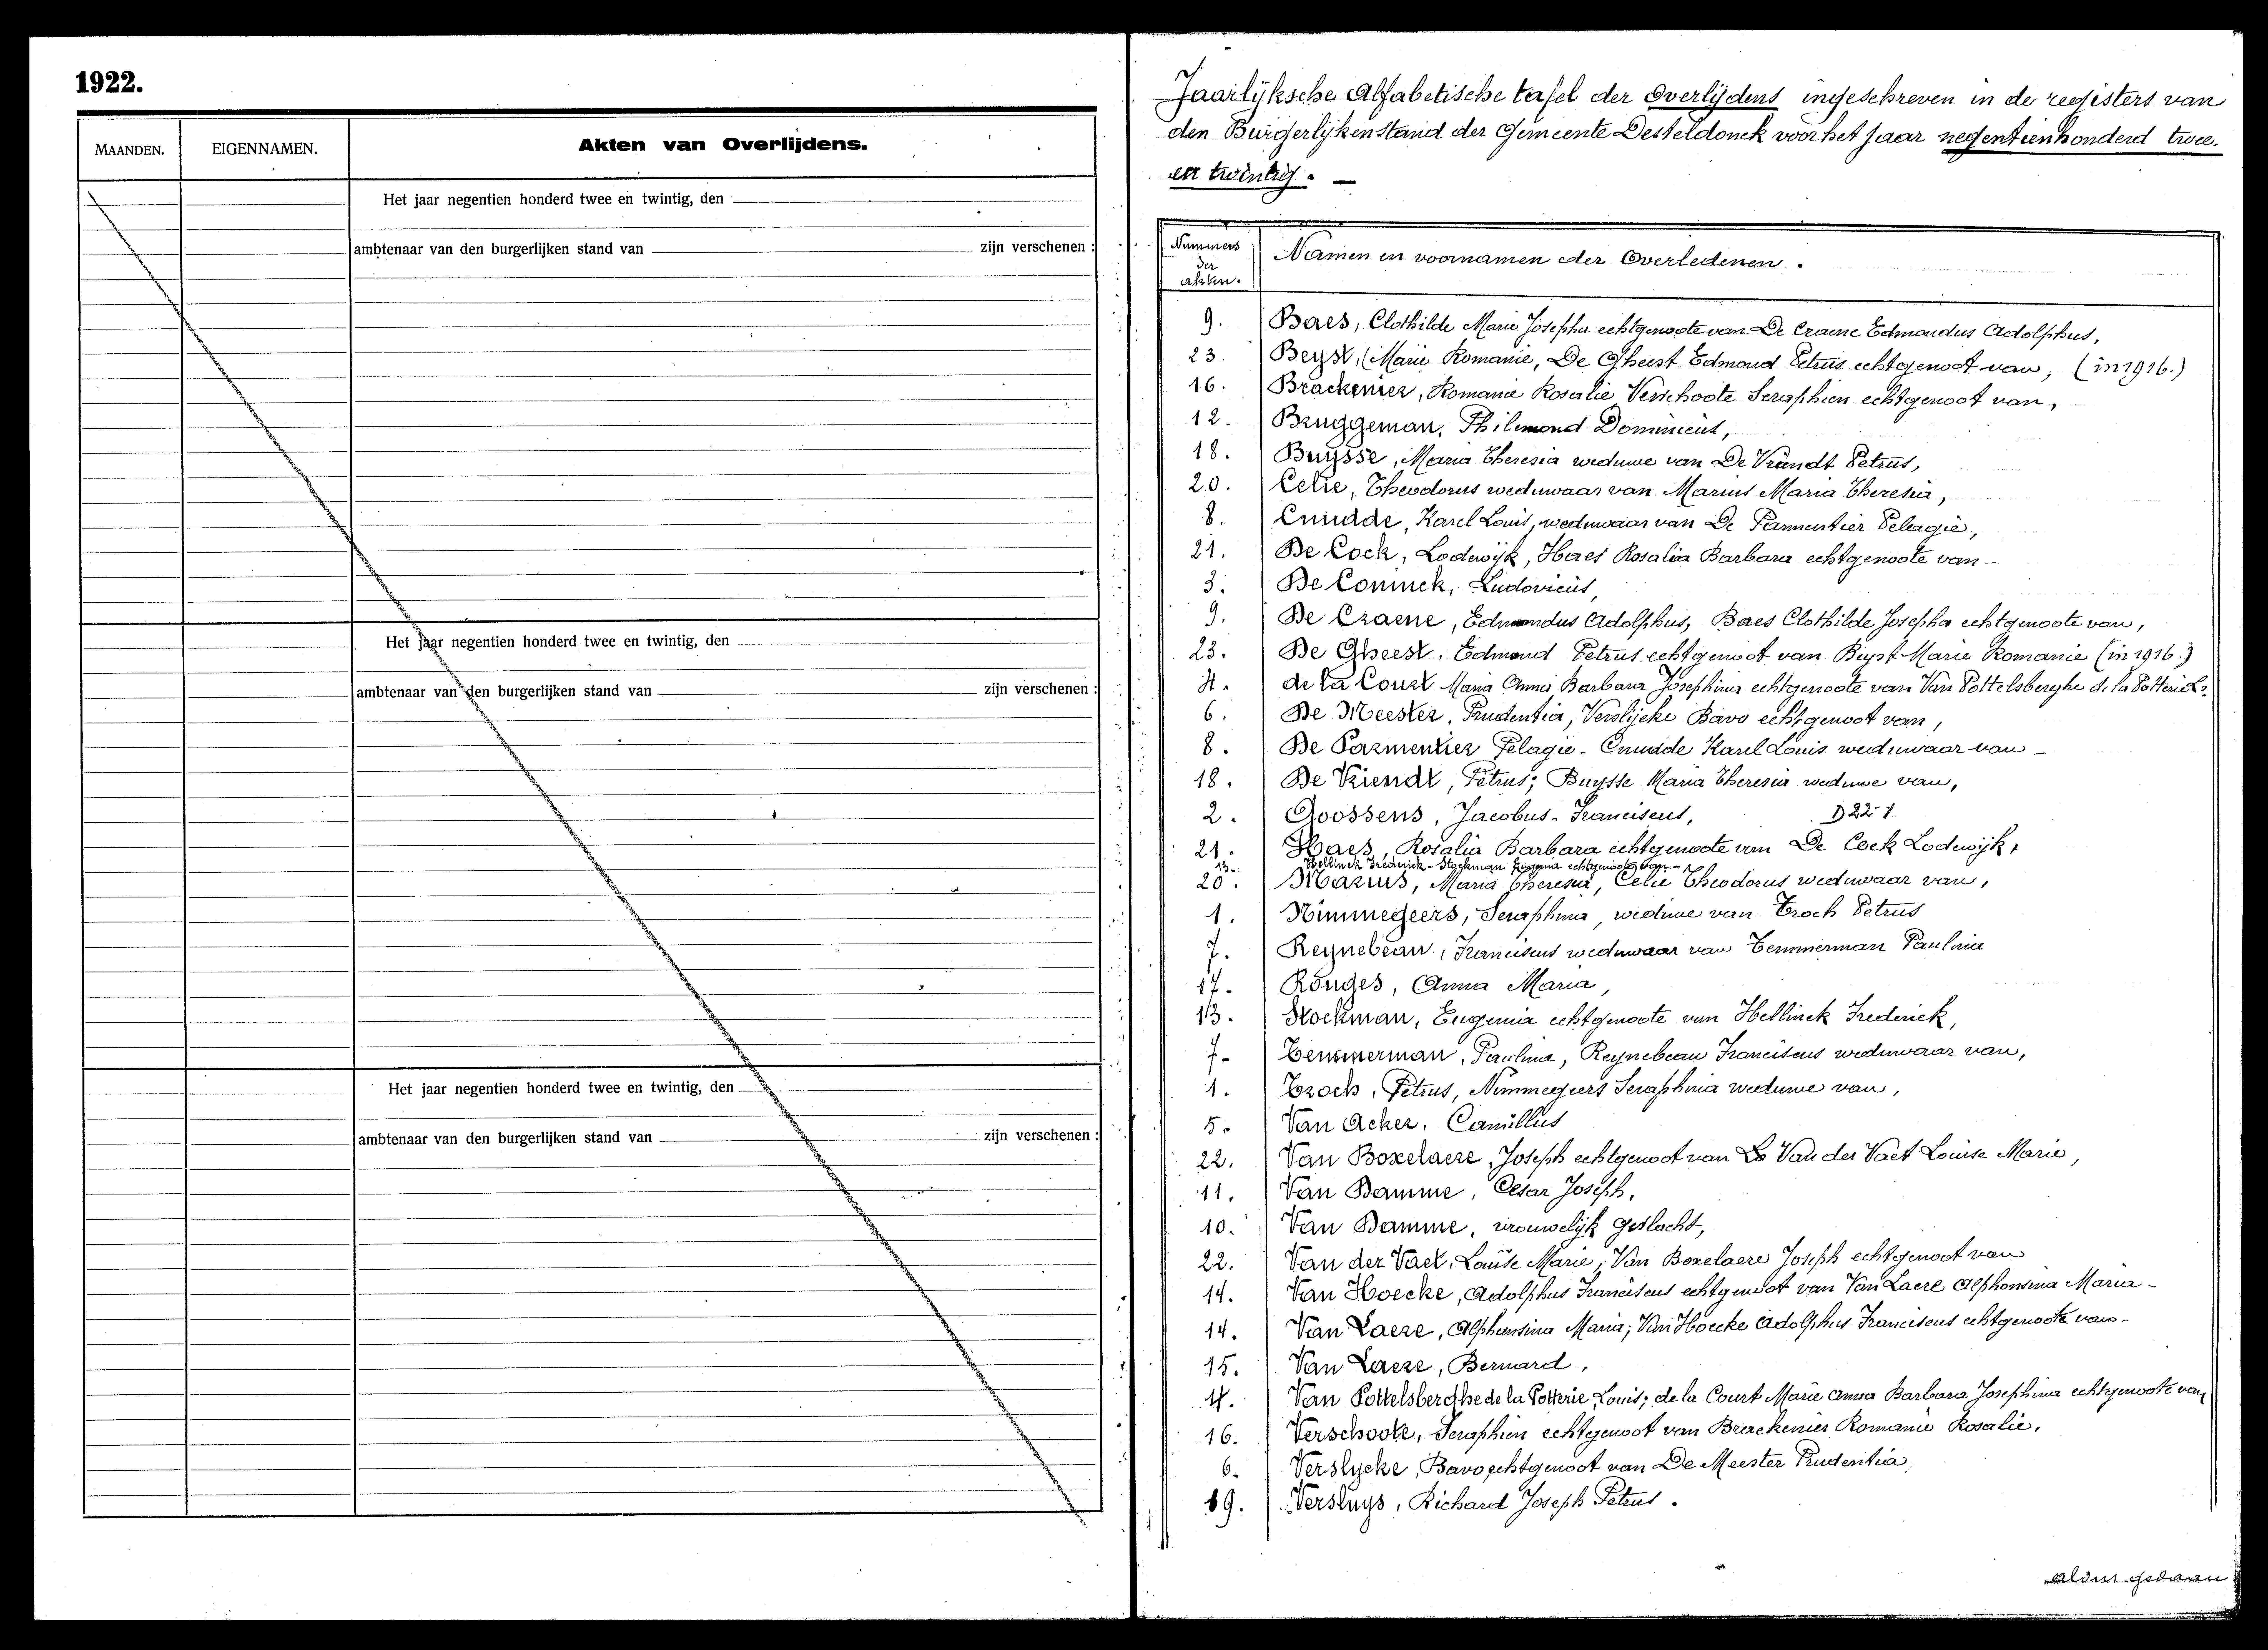 1922.
MAANDEN. EIGENNAMEN. Akten van Overlijdens.
Het jaar negentien honderd twee en twintig, den
ambtenaar van den burgerlijken stand van zijn verschenen :
Het jaar negentien honderd twee en twintig, den
ambtenaar van den burgerlijken stand van zijn verschenen :
Het jaar negentien honderd twee en twintig, den
ambtenaar van den burgerlijken stand van zijn verschenen :
Jaarlijksche Alfabetische tafel der Overlijdens ingeschreven in de registers van
den Burgerlijkenstand der Gemeente Desteldonck voor het jaar negentienhonderd twee.
en twintig. —
Nummers der akten. Namen en voornamen der Overledenen.
9. Baes, Clothilde Marie Josepha echtgenoote van De Craene Edmondus Adolphus,
23. Beyst, Marie Romanie, De Gheest Edmond Petrus echtgenoot van, (in 1916.)
16. Brackenier, Romanie Rosalie Verschoote Seraphien echtgenoot van,
12. Bruggeman, Philemond Dominicus,
18. Buysse, Maria Theresia weduwe van De Vriendt Petrus,
20. Celie, Theodorus weduwaar van Marius Maria Theresia,
8. Cnudde, Karel Louis, weduwaar van De Parmentier Pelagie,
21. De Cock, Lodewijk, Haes Rosalia Barbara echtgenoote van -
3. De Coninck, Ludovicus,
9. De Craene, Edmondus Adolphus, Baes Clothilde Josepha echtgenoote van,
23. De Gheest, Edmond Petrus echtgenoot van Beyst Marie Romanie (in 1916.)
4. de la Court Maria Anna Barbara Josephina echtgenoote van Van Pottelsberghe de la Potterie Ls.
6. De Meester, Prudentia, Verslycke Bavo echtgenoot van,
8. De Parmentier Pelagie - Cnudde Karel Louis weduwaar van -
18. De Vriendt, Petrus; Buysse Maria Theresia weduwe van,
2. Goossens, Jacobus - Franciscus, D22-1
21. Haes, Rosalia Barbara echtgenoote van De Cock Lodewijk,
13. Hellinck Frederick - Stockman Eugenia echtgenoote van -
20. Marius, Maria Theresia, Celie Theodorus weduwaar van,
1. Nimmegeers, Seraphina, weduwe van Troch Petrus
7. Reynebeau, Franciscus weduwaar van Temmerman Paulina
17- Rouges, Anna Maria,
13. Stockman, Eugenia echtgenoote van Hellinck Frederick,
7- Temmerman, Paulina, Reynebeau Franciscus weduwaar van,
1. Troch, Petrus, Nimmegeers Seraphina weduwe van,
5. Van Acker, Camillus
22. Van Boxelaere, Joseph echtgenoot van Van der Vaet Louise Marie,
11. Van Damme, César Joseph,
10. Van Damme, vrouwelijk geslacht,
22. Van der Vaet, Louise Marie, Van Boxelaere Joseph echtgenoot van
14. Van Hoecke, Adolphus Franciscus echtgenoot van Van Laere Alphonsina Maria -
14. Van Laere, Alphonsina Maria; Van Hoecke Adolphus Franciscus echtgenoote van -
15. Van Laere, Bernard,
4. Van Pottelsberghe de la Potterie, Louis; de la Court Marie Anna Barbara Josephina echtgenoote van,
16. Verschoote, Seraphien echtgenoot van Brackenier Romanie Rosalie,
6. Verslycke, Bavo echtgenoot van De Meester Prudentia,
19. Versluys, Richard Joseph Petrus.
aldus gedaan